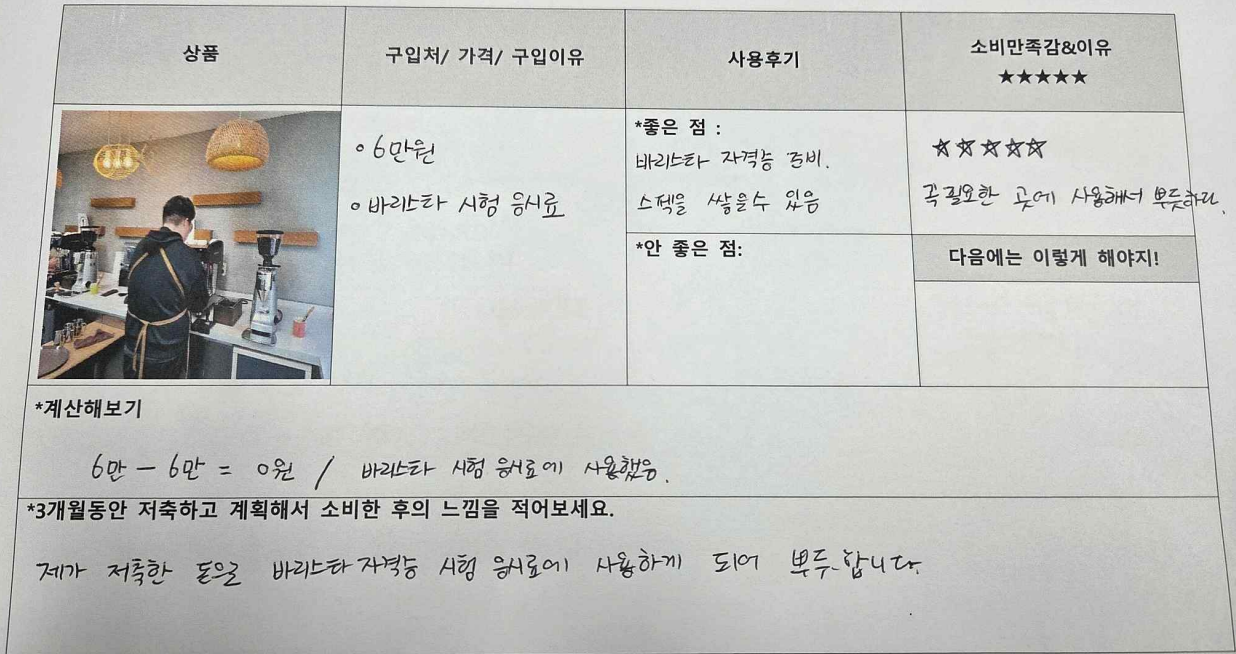 상품
구입처/ 가격/ 구입이유
사용후기
소비만족감&이유
★★★★★
∘ 6만원
∘ 바리스타 시험 응시료
*좋은 점 :
바리스타 자격증 준비.
스펙을 쌓을수 있음
*안 좋은 점:
☆☆☆☆☆
꼭 필요한 곳에 사용해서 뿌듯하다.
다음에는 이렇게 해야지!
*계산해보기
6만 - 6만 = 0원 / 바리스타 시험 응시료에 사용했음.
*3개월동안 저축하고 계획해서 소비한 후의 느낌을 적어보세요.
제가 저축한 돈으로 바리스타 자격증 시험 응시료에 사용하게 되어 뿌듯합니다.